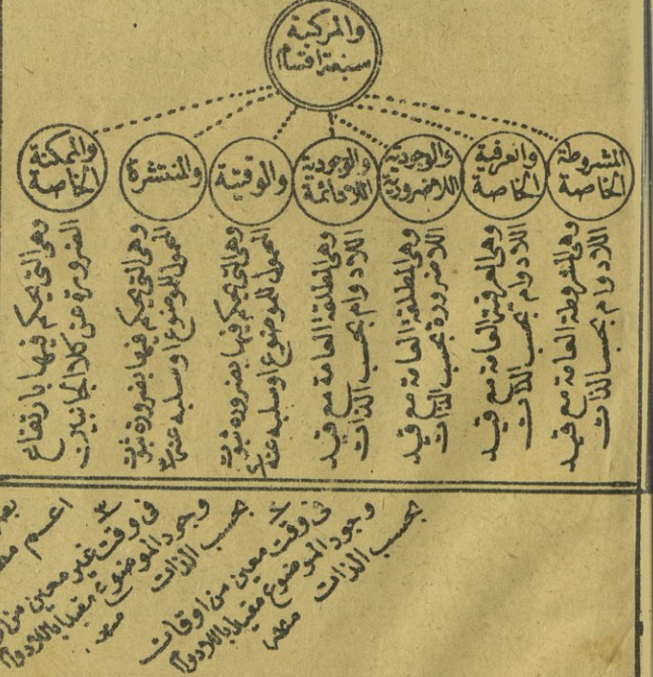 والمركبة
سبعة اقسام
المشروطة
الخاصة
والعرفية
الخاصة
والوجودية
اللاضرورية
والوجودية
اللادائمة
والوقتية
والمنتشرة
والممكنة
الخاصة
وهى المشروطة العامة مع قيد
اللادوام بحسب الذات
وهى العرفية العامة مع قيد
اللادوام بحسب الذات
وهى المطلقة العامة مع قيد
اللاضرورة بحسب الذات
وهى المطلقة العامة مع قيد
اللادوام بحسب الذات
وهى التى يحكم فيها بضرورة ثبوت
المحمول للموضوع او سلبه عنه
وهى التى يحكم فيها بضرورة ثبوت
المحمول للموضوع او سلبه عنه
وهى التى يحكم فيها بارتفاع
الضرورة عن كلا الجانبين
فى وقت معين من اوقات
وجود الموضوع مقيدا باللادوام
بحسب الذات
فى وقت غير معين من
وجود الموضوع مقيدا باللادوام
بحسب الذات
اعم